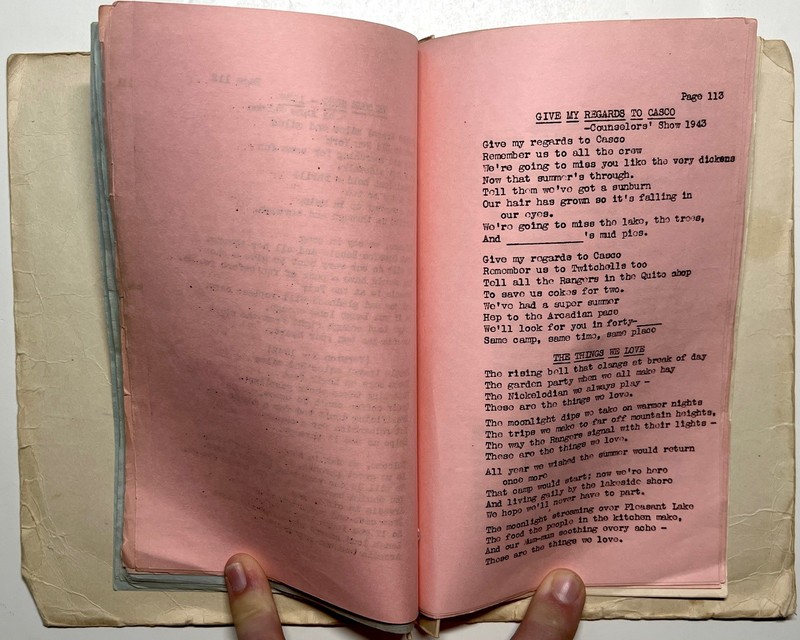 Page 113
GIVE MY REGARDS TO CASCO
-Counselors' Show 1943
Give my regards to Casco
Remember us to all the crew
We're going to miss you like the very dickens
Now that summer's through.
Tell them we've got a sunburn
Our hair has grown so it's falling in
our eyes.
We're going to miss the lake, the trees,
And ____________'s mud pies.
Give my regards to Casco
Remember us to Twitchells too
Tell all the Rangers in the Quito shop
To save us cokes for two.
We've had a super summer
Hep to the Arcadian pace
We'll look for you in forty-____
Same camp, same time, same place
THE THINGS WE LOVE
The rising bell that clangs at break of day
The garden party when we all make hay
The Nickelodian we always play -
These are the things we love.
The moonlight dips we take on warmer nights
The trips we make to far off mountain heights,
The way the Rangers signal with their lights -
These are the things we love.
All year we wished the summer would return
once more
That camp would start; now we're here
And living gaily by the lakeside shore
We hope we'll never have to part.
The moonlight streaming over Pleasant Lake
The food the people in the kitchen make,
And our soothing every ache -
These are the things we love.